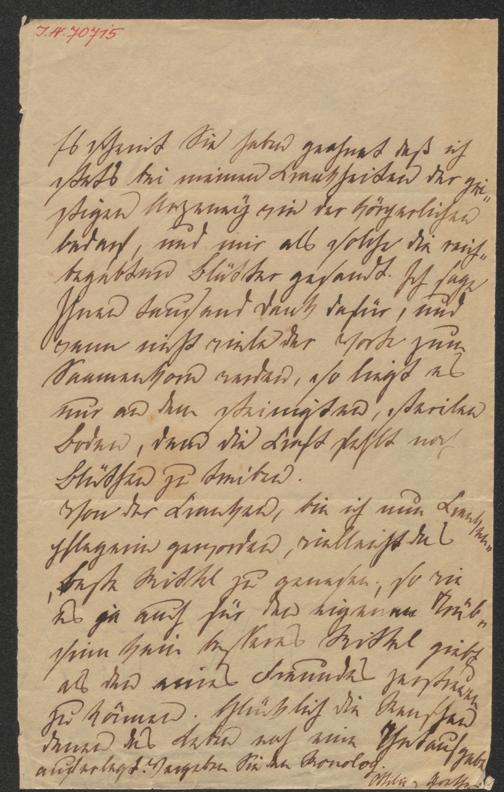 J.N. 70715
Es scheint Sie haben geahnet daß ich
stets bei meinen Krankheiten der gei„
stigen Arzeney wie der körperlichen
bedarf, und mir als solche die reich„
begabten Blätter gesandt. Ich sage
Ihnen tausend Dank dafür, und
wenn nicht viele der Worte zum
Saamenkorn werden, so liegt es
nur an dem steinigten, sterilen
Boden, dem die Kraft fehlt noch
Blüthen zu treiben.
Von der Kranken, bin ich nun Kranken„
pflegerin geworden, vielleicht das
beste Mittel zu genesen, so wie
es ja auch für den eigenen Trüb„
sinn kein besseres Mittel giebt
als den eines Freundes zerstreuen
zu können. Glücklich die Menschen
denen das Leben noch eine Thataufgabe
auferlegt. Vergeben Sie den Monolog.
Ottilie v Goethe